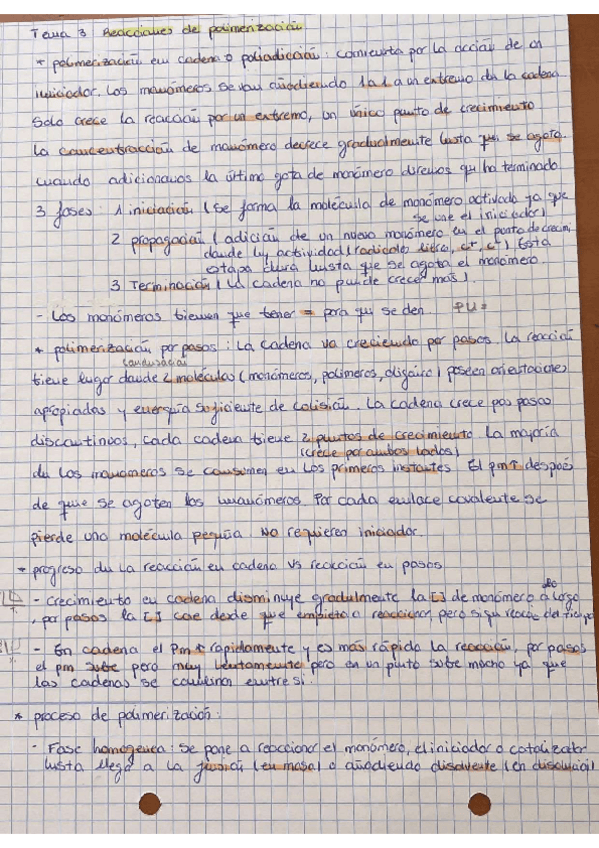 Tema 3 Reacciones de polimerización
* polimerización en cadena o poliadición: comienza por la acción de un
iniciador. Los monómeros se van añadiendo 1 a 1 a un extremo de la cadena
Solo crece la reacción por un extremo, un único punto de crecimiento
La concentracción de monómero decrece gradualmente hasta que se agota.
cuando adicionamos la última gota de monómero diremos que ha terminado
3 fases: 1 iniciación (se forma la molécula de monómero activado ya que
se une el iniciador)
2 propagación (adición de un nuevo monómero en el punto de crecim,
donde hay actividad (radicales libres, c+, c-) Esta
etapa dura hasta que se agota el monómero.
3 Terminación (la cadena no puede crecer más).
- Los monómeros tienen que tener = para que se den.
* polimerización por pasos: La cadena va creciendo por pasos. La reacción
condensación
tiene lugar donde 2 moléculas (monómeros, polímeros, oligómero) poseen orientaciones
apropiadas y energía suficiente de colisión. La cadena crece por pasos
discontinuos, cada cadena tiene 2 puntos de crecimiento. La mayoría
(crece por ambos lados)
de los monómeros se consumen en los primeros instantes El pm↑ después
de que se agoten los monómeros. Por cada enlace covalente se
pierde una molécula pequña. No requieren iniciador.
* progreso de la reacción en cadena vs reacción en pasos
- crecimiento en cadena disminuye gradulmente la [] de monómero a lo largo
, por pasos la [] cae desde que empieza a reaccionar, pero sigue reacc. del tiempo
- En cadena el Pm ↑ rápidamente y es más rápida la reacción, por pasos
el pm sube pero muy lentamente pero en un punto sube mucho ya que
las cadenas se combinan entre si.
* proceso de polimerización:
- Fase homogenea: se pone a reaccionar el monómero, el iniciador o catalizador
hasta llega a la fusión (en masa) o añadiendo disolvente (en disolución)